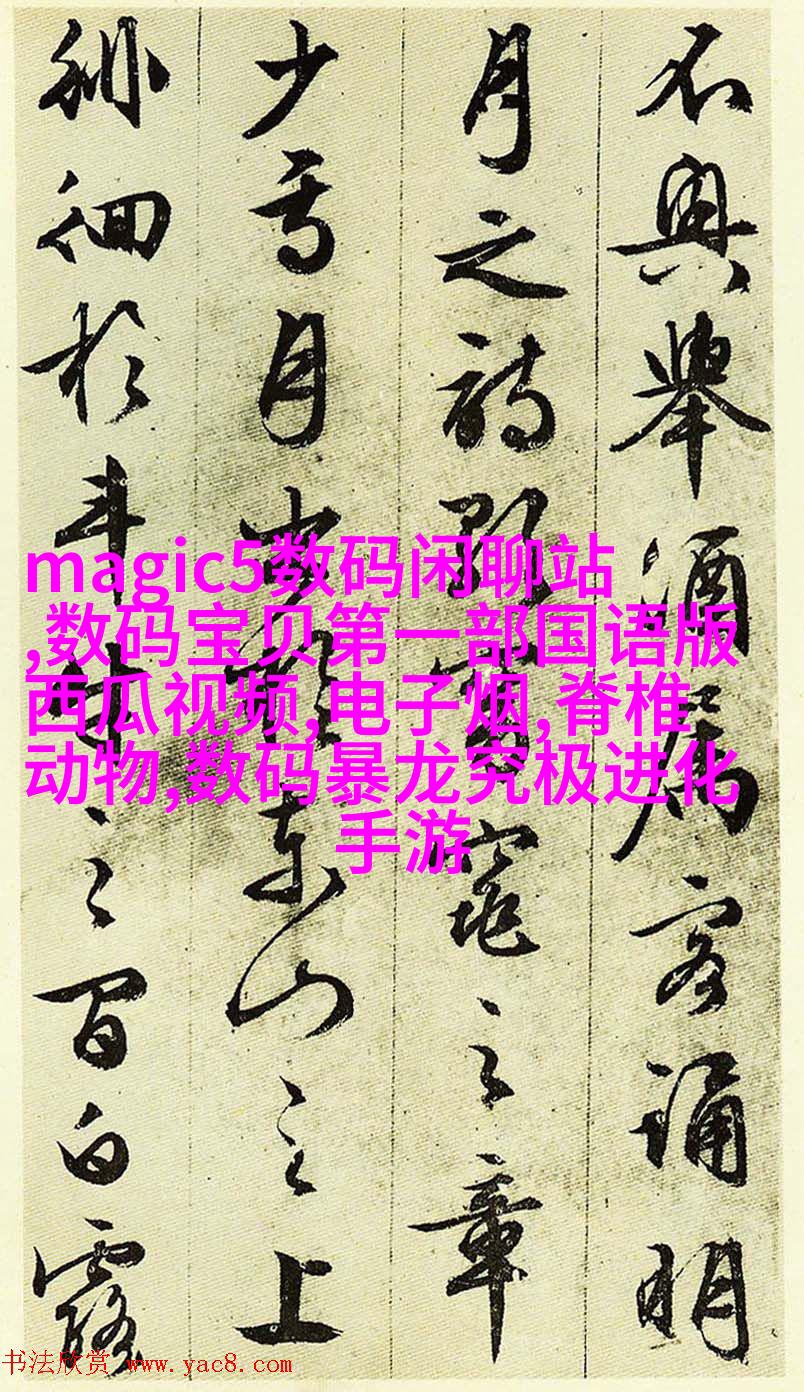 不興舉酒屬客誦明
月之詩歌窈窕之章
少焉月出於東山之上
徘徊於斗牛之間白露
magic5数码闲聊站
,数码宝贝第一部国语版
西瓜视频,电子烟,脊椎
动物,数码暴龙究极进化
手游
书法欣赏 www.yac8.com